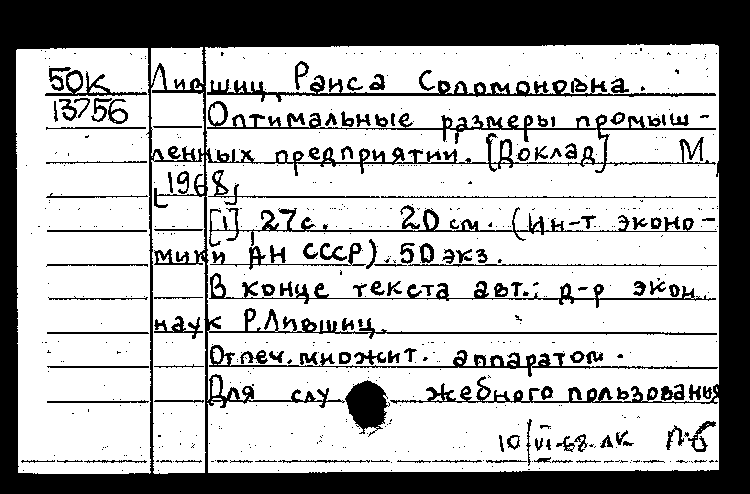 50К Лившиц, Раиса Соломоновна.
13756 Оптимальные размеры промыш-
ленных предприятий. [Доклад] М.,
[1968]
[1], 27с. 20 см. (Ин-т эконо-
мики АН СССР). 50 экз.
В конце текста авт.: д-р экон.
наук Р.Лившиц.
Отпеч. множит. аппаратом.
Для служебного пользования
10/VI-68. ЛК П-б